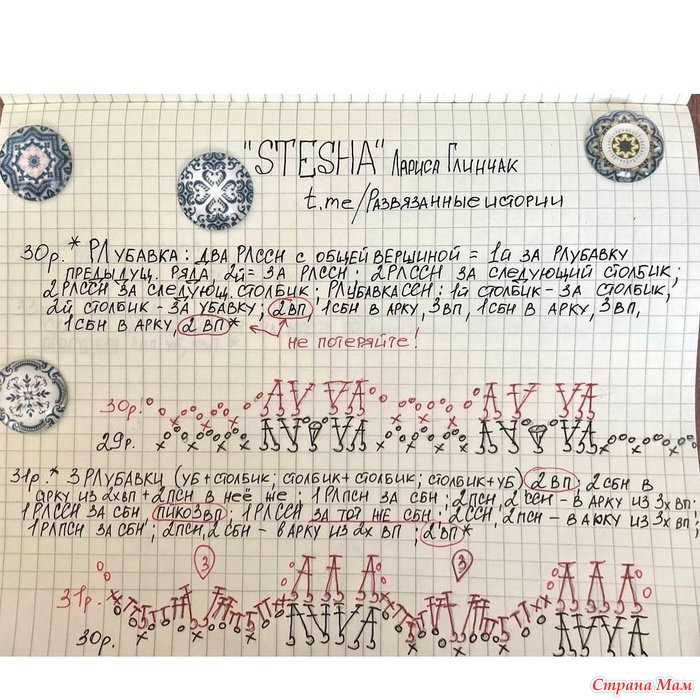 "STESHA" Лариса Глинчак
t.me/Развязанные истории
30р. * РЛубавка: два РЛССН с общей вершиной = 1й за РЛубавку
предыдущ. ряда, 2й= за РЛССН; 2РЛССН за следующий столбик;
2РЛССН за следующ. столбик; РЛубавкаССН: 1й столбик - за столбик,
2й столбик - за убавку; 2ВП, 1СБН в арку, 3ВП, 1СБН в арку, 3ВП,
1СБН в арку, 2ВП *
не потеряйте!
30р.
29р.
31р. * 3 РЛубавки (уб+столбик; столбик+столбик; столбик+уб) 2ВП; 2СБН в
арку из 2хВП + 2ПСН в неё же; 1РЛПСН за СБН; 2ПСН, 2ССН - в арку из 3х ВП;
1РЛССН за СБН ПИКО3ВП; 1РЛССН за тот же СБН; 2ССН, 2ПСН - в арку из 3х ВП;
1РЛПСН за СБН; 2ПСН, 2СБН - в арку из 2х ВП; 2ВП *
3
3
31р.
30р.
Страна Мам